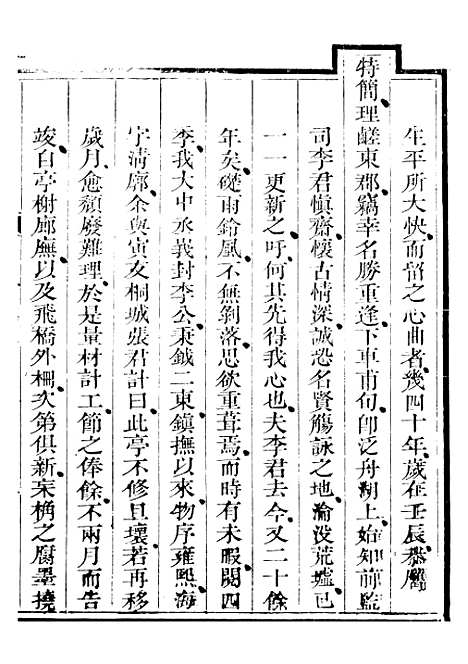 生平所大快而留之心曲者幾四十年歲在壬辰恭膺
特簡理鹺東郡竊幸名勝重逢下車甫旬卽泛舟湖上始知前鹺
司李君愼齋懷古情深誠恐名賢觴詠之地淪沒荒墟已
一一更新之吁何其先得我心也夫李君去今又二十餘
年矣礎雨鈴風不無剝落思欲重葺焉而時有未暇閱四
季我大中丞義封李公秉鉞二東鎮撫以來物序雍熙海
宇淸廓余與寅友桐城張君計曰此亭不修且壞若再移
歲月愈頹廢難理於是量材計工節之俸餘不兩月而告
竣自亭榭廊廡以及飛橋外柵次第俱新宋桷之腐墨撓